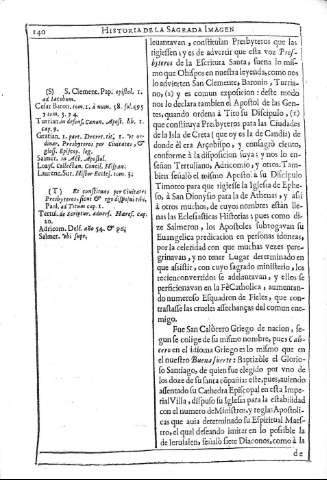 140 HISTORIA DE LA SAGRADA IMAGEN
(S) S. Clement. Pap. epistol. 1.
ad Iacobum.
Cæsar Baron. tom. 1. à num. 58. fol. 495
Turrian. in defens. Canon. Apost. lib. 1.
cap. 9.
Gratian. 1. part. Decret. tit.
Presbyteros per Ciuitates, &
gloss. Epistop. leg.
Salmer. in Act. Apostol.
Loays. Collectan. Concil. Hispan.
Laurent. Sur. Histor. Eccles. tom. 3.
(T) Et constituas per ciuitates
Presbyteros, sicut & ego disposui tibi.
Paul. ad Titum cap. 1.
Tertul. de scriptur. aduers. Hæres. cap.
20.
Adricom. Delf. año 54. &
Salmer. vbi supr.
leuantavan, constituian Presbyteros que las
rigiessen; y es de advertir que esta voz Pres-
byteros de la Escritura Santa, suena lo mis-
mo que Obispos en nuestra leyenda, como nos
lo advierten San Clemente, Baronio, Turria-
no, (S) y es comun exposicion: deste modo
nos lo declara tambien el Apostol de las Gen-
tes, quando ordena à Tito su Discipulo, (T)
que constituya Presbyteros para las Ciudades
de la Isla de Creta (que oy es la de Candia) de
donde èl era Arçobispo, y consagrò ciento,
conforme à la disposicion suya; y nos lo en-
señan Tertuliano, Adricomio, y otros. Tam-
bien señalò el mismo Apostol à su Discipulo
Timoteo para que rigiesse la Iglesia de Ephe-
so, à San Dionysio para la de Athenas, y assi
à otros muchos, de cuyos nombres estàn lle-
nas las Eclesiasticas Historias; pues como di-
ze Salmeron, los Apostoles subrogavan su
Euangelica predicacion en personas idoneas,
por la celeridad con que muchas vezes pere-
grinavan, y no tener Lugar determinado en
que assistir, con cuyo sagrado ministerio, los
recienconvertidos se adelantavan, y ellos se
perficionavan en la Fè Catholica, aumentan-
do numeroso Esquadron de Fieles, que con-
trastasse las crueles assechanças del comun ene-
migo.
Fue San Calòcero Griego de nacion, se-
gun se colige de su mismo nombre, pues Calo-
cero en el idioma Griego es lo mismo, que en
el nuestro Buena suerte: Baptizòle el Glorio-
so Santiago, de quien fue elegido por vno de
los doze de su santa cõpañia: este, pues, auiendo
assentado su Cathedra Episcopal en esta Impe-
rial Villa, dispuso su Iglesia para la estabilidad
con el numero de Ministros, y reglas Apostoli-
cas que auia determinado su Espiritual Maes-
tro, el qual deseando imitar en lo possible la
de Ierusalen, señalò siete Diaconos, como à la
de